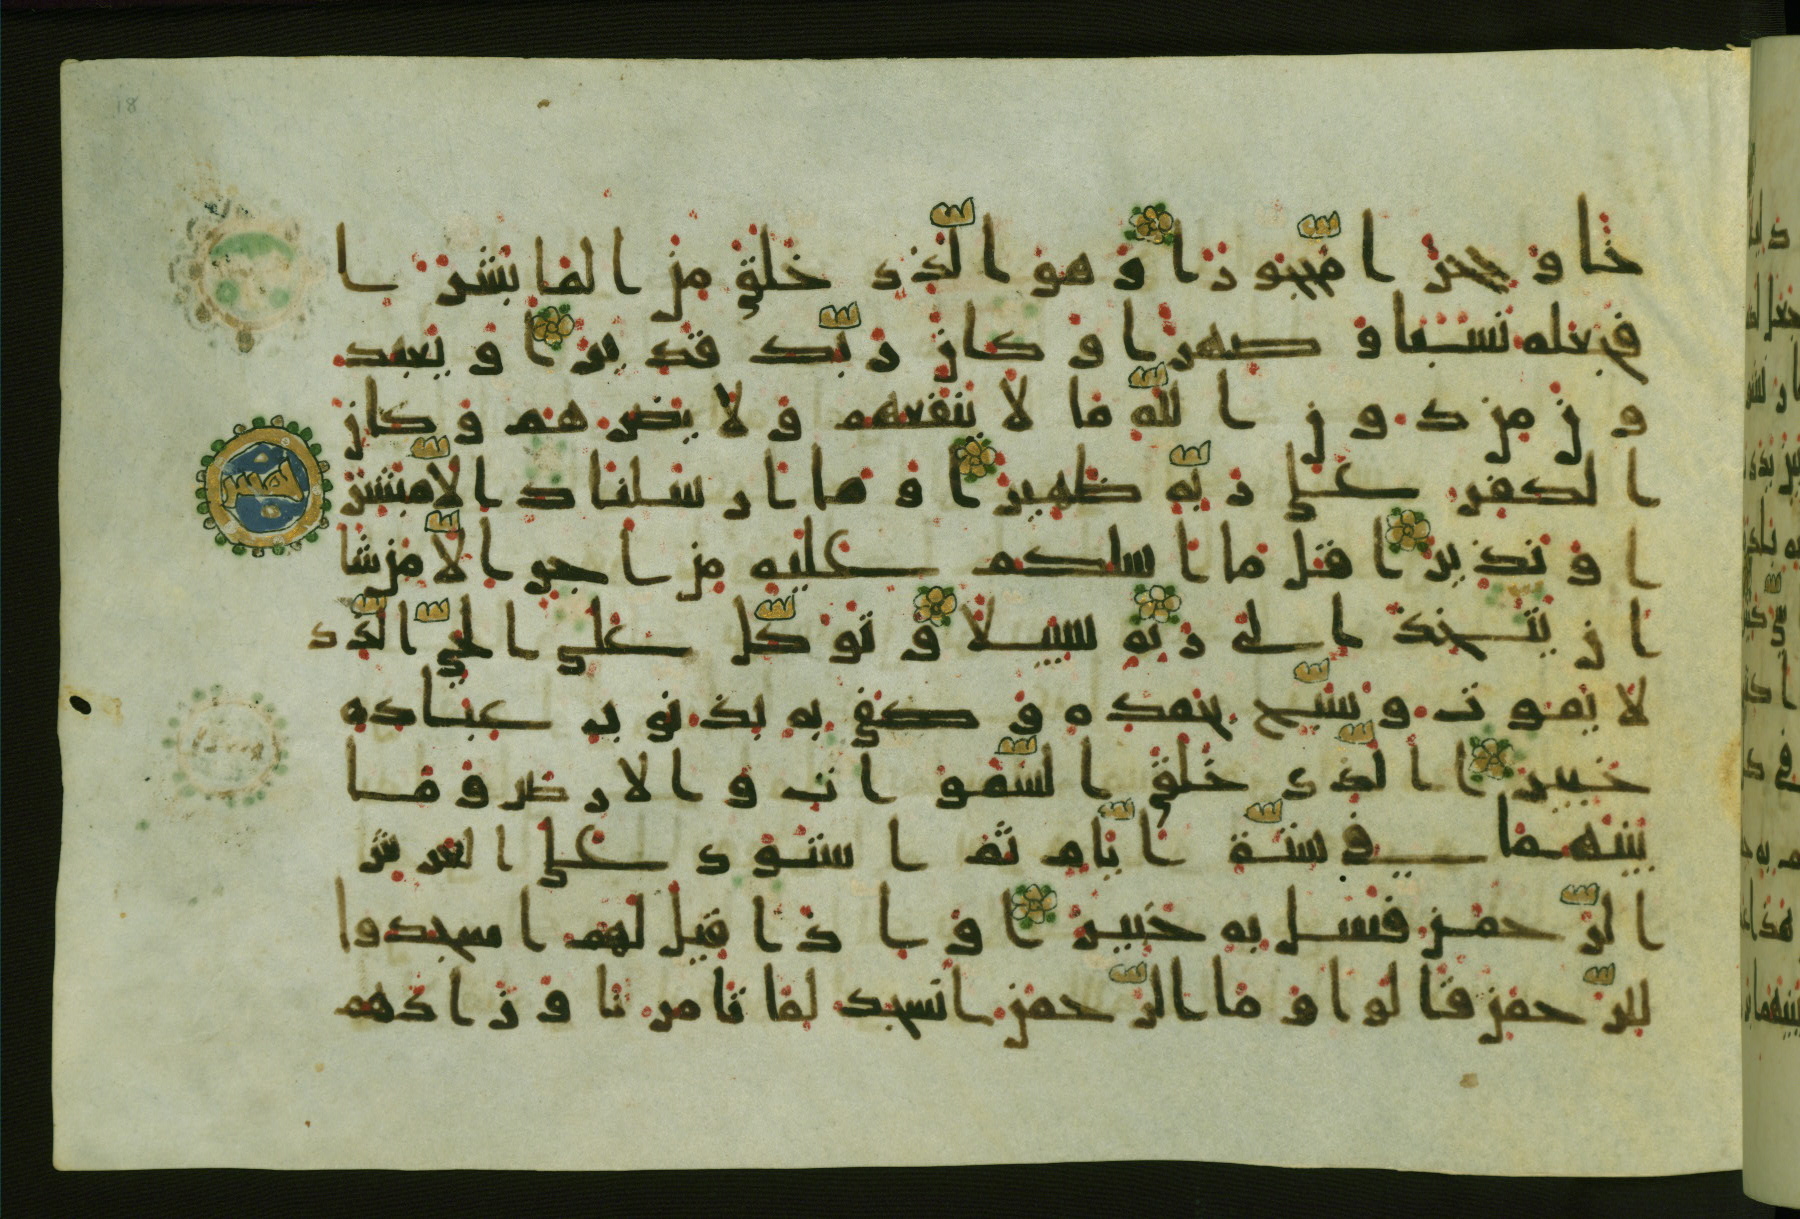 خا وحجرا محجورا وهو الذى خلق من الما بشرا
فجعله نسبا وصهرا وكان ربك قديرا ويعبد
ون من دون الله ما لا ينفعهم ولا يضرهم وكان
الكفر على ربه ظهيرا وما ارسلناك الا مبشر
ا ونذيرا قل ما اسلكم عليه من اجر الا من شا
ان يتخذ الى ربه سبيلا وتوكل على الحي الذى
لا يموت وسبح بحمده وكفى به بذنوب عباده
خبيرا الذى خلق السموات والارض وما
بينهما في ستة ايام ثم استوى على العرش
الرحمن فسل به خبيرا واذا قيل لهم اسجدوا
للرحمن قالوا وما الرحمن انسجد لما تامرنا وزادهم
18